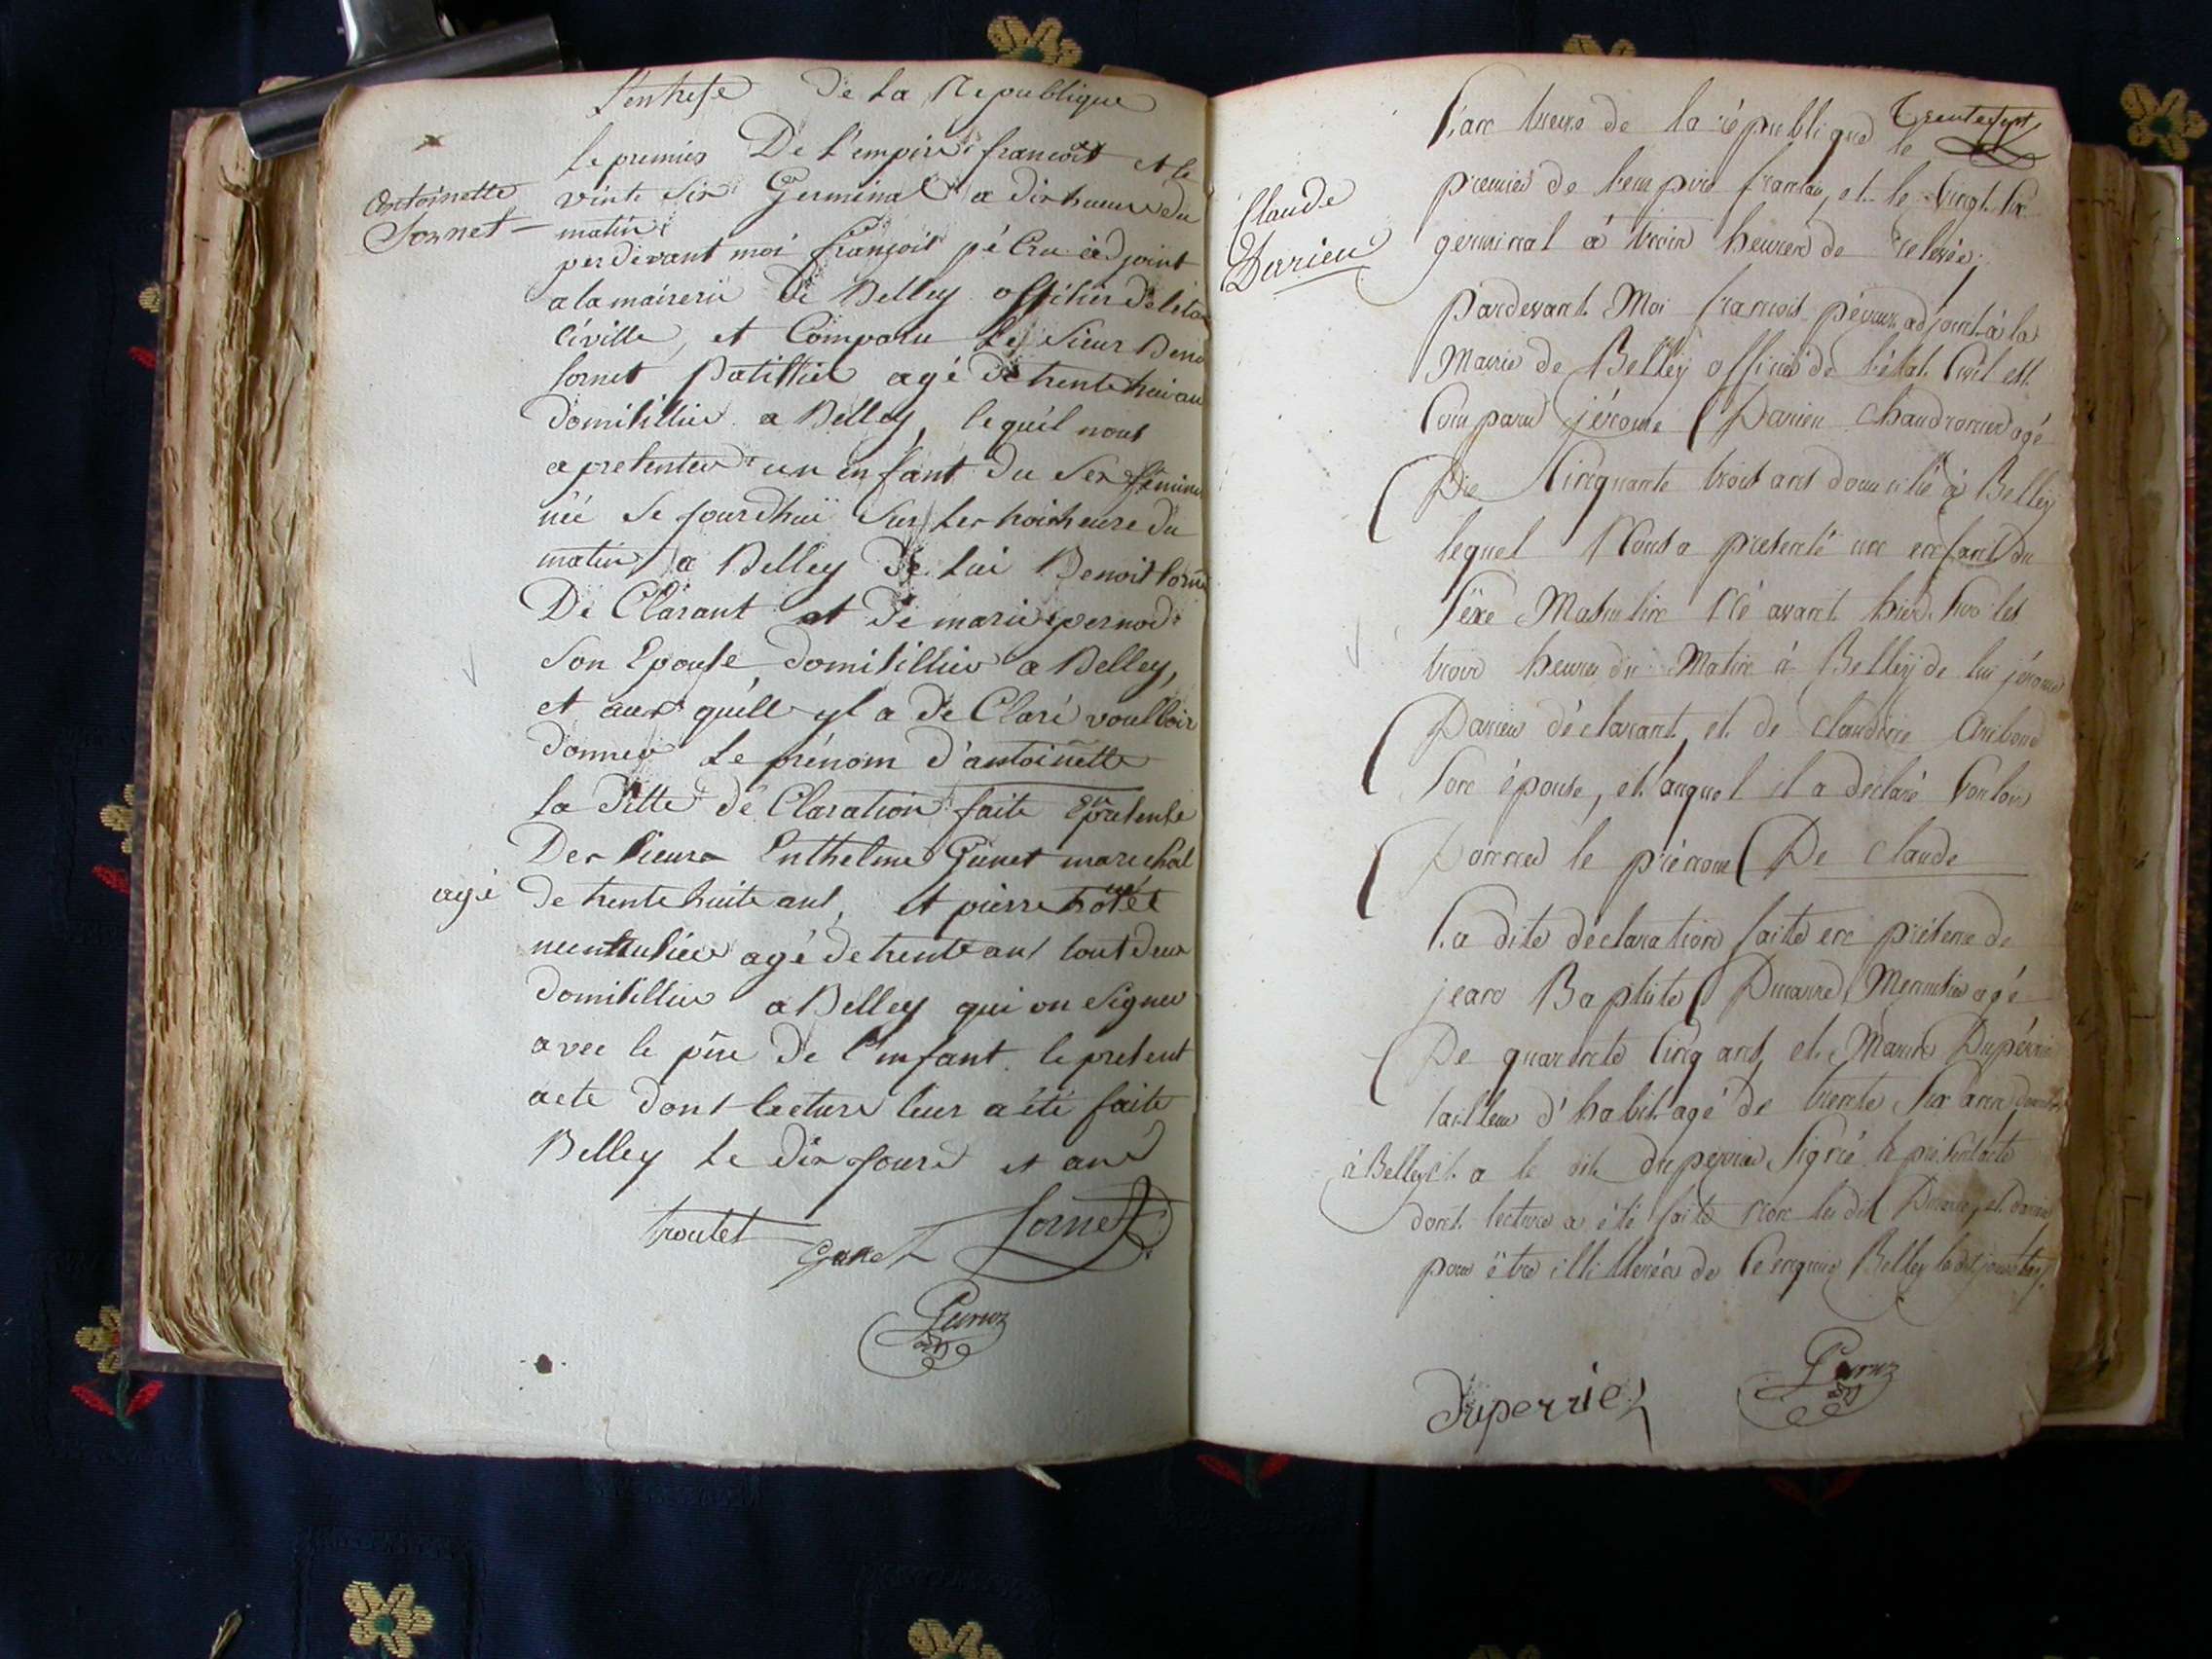 L'entrese De la Republique
le premier De L'empire françois et le
vinte six Germinal a dix heure du
matin
Antoinette
Sornet
perdevant moi françois péCru adjoint
a la mairerie De Belley officier de l'eta
Civille, et Comparu le Sieur Beno
Sornet Patissier agé de trente huit an
domisillier a Belley, lequél nous
a presenter un enfant du Sex féminin
née Se jourdhui Sur les trois heure du
matin a Belley De lui Benoit Sornet
De Clarant et de marie pernod
Son Epouse domisillier a Belley,
et auquéll yl a de Claré voulloir
donner Le prénom d'antoinette
la ditte dé Claration faite En presense
Des Sieurs Enthelme Gunet marechal
agé de trente huite ans, et pierre
menusier agé de trente ans tout deux
domisillier a Belley qui on Signer
avec le pére De l'enfant le present
acte dont lecture leur a été faite
Belley Le dix jours et ane
troulet Gunet Sornet
Peccruz
adj
Trente sept
L'an treize de la république le
premier de l'empire français, et le vingt six
germinal à trois heures de relevée,
Claude
Darieu
Pardevant Moi francois pécruz adjoint à la
Mairie de Belley officier de l'état Civil est
Comparu jérome Darieu Chaudronier agé
De Cinquante trois ans domicilié à Belley
lequel Nous a presenté un enfant du
Séxe Masculin Né avant hier Sur les
trois heures du Matin à Belley de lui jérome
Darieu déclarant, et de Claudine
Son épouse, et auquel il a déclaré Vouloir
Donner le prénom De Claude
La dite déclaration faite en présence de
jean Baptiste Menuisier agé
De quarante Cinq ans, et Dupérier
tailleur d'habit agé de trente Six ans
à Belley et a le dit duperrier Signé le présent acte
dont lecture a été faite non les dit et darieu
pour être illitérés de Ce enquis Belley le dit jour et an.
Duperrier
Peccruz
adj